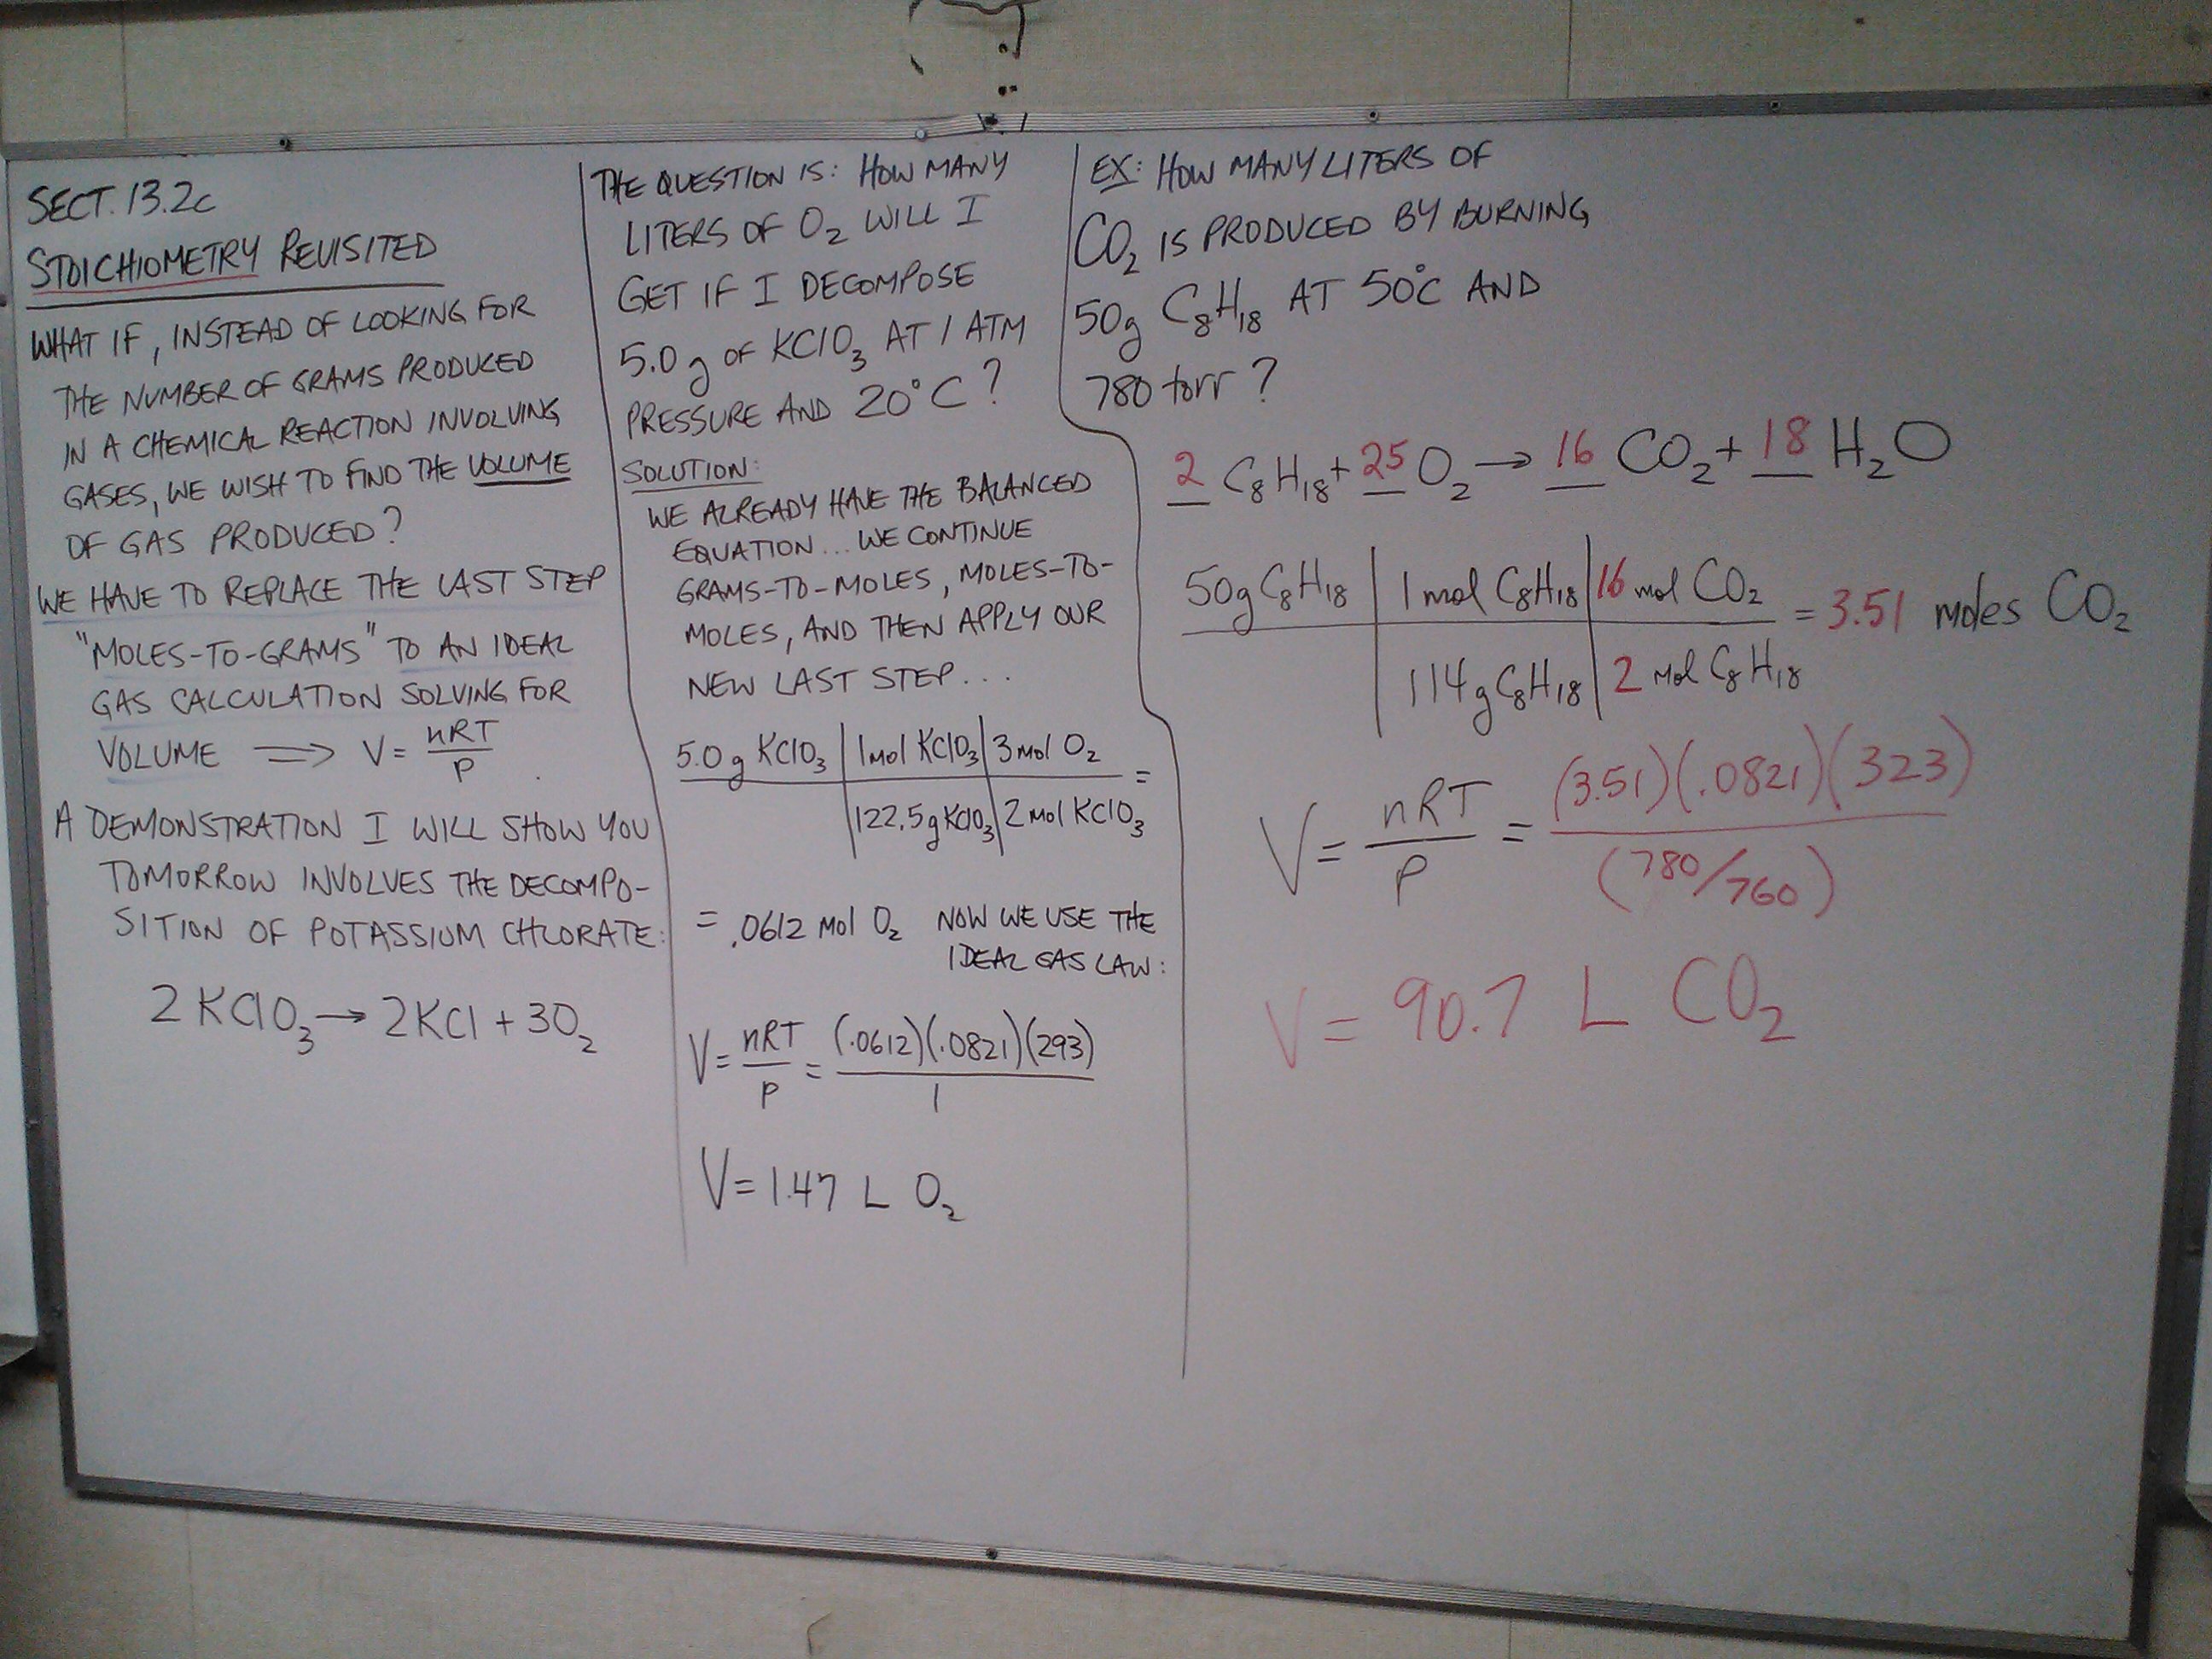 SECT. 13.2c
STOICHIOMETRY REVISITED
WHAT IF, INSTEAD OF LOOKING FOR
THE NUMBER OF GRAMS PRODUCED
IN A CHEMICAL REACTION INVOLVING
GASES, WE WISH TO FIND THE VOLUME
OF GAS PRODUCED?
WE HAVE TO REPLACE THE LAST STEP
"MOLES-TO-GRAMS" TO AN IDEAL
GAS CALCULATION SOLVING FOR
VOLUME ⟹ V = nRT/P
A DEMONSTRATION I WILL SHOW YOU
TOMORROW INVOLVES THE DECOMPO-
SITION OF POTASSIUM CHLORATE:
2 KClO₃ → 2KCl + 3O₂
THE QUESTION IS: HOW MANY
LITERS OF O₂ WILL I
GET IF I DECOMPOSE
5.0 g OF KClO₃ AT 1 ATM
PRESSURE AND 20°C?
SOLUTION:
WE ALREADY HAVE THE BALANCED
EQUATION... WE CONTINUE
GRAMS-TO-MOLES, MOLES-TO-
MOLES, AND THEN APPLY OUR
NEW LAST STEP...
5.0 g KClO₃ | 1 mol KClO₃ | 3 mol O₂ =
122.5 g KClO₃ | 2 mol KClO₃
= .0612 mol O₂ NOW WE USE THE
IDEAL GAS LAW:
V = nRT/P = (.0612)(.0821)(293)/1
V = 1.47 L O₂
EX: HOW MANY LITERS OF
CO₂ IS PRODUCED BY BURNING
50g C₈H₁₈ AT 50°C AND
780 torr?
2 C₈H₁₈ + 25 O₂ → 16 CO₂ + 18 H₂O
50g C₈H₁₈ | 1 mol C₈H₁₈ | 16 mol CO₂ = 3.51 moles CO₂
114 g C₈H₁₈ | 2 mol C₈H₁₈
V = nRT/P = (3.51)(.0821)(323)/(780/760)
V = 90.7 L CO₂